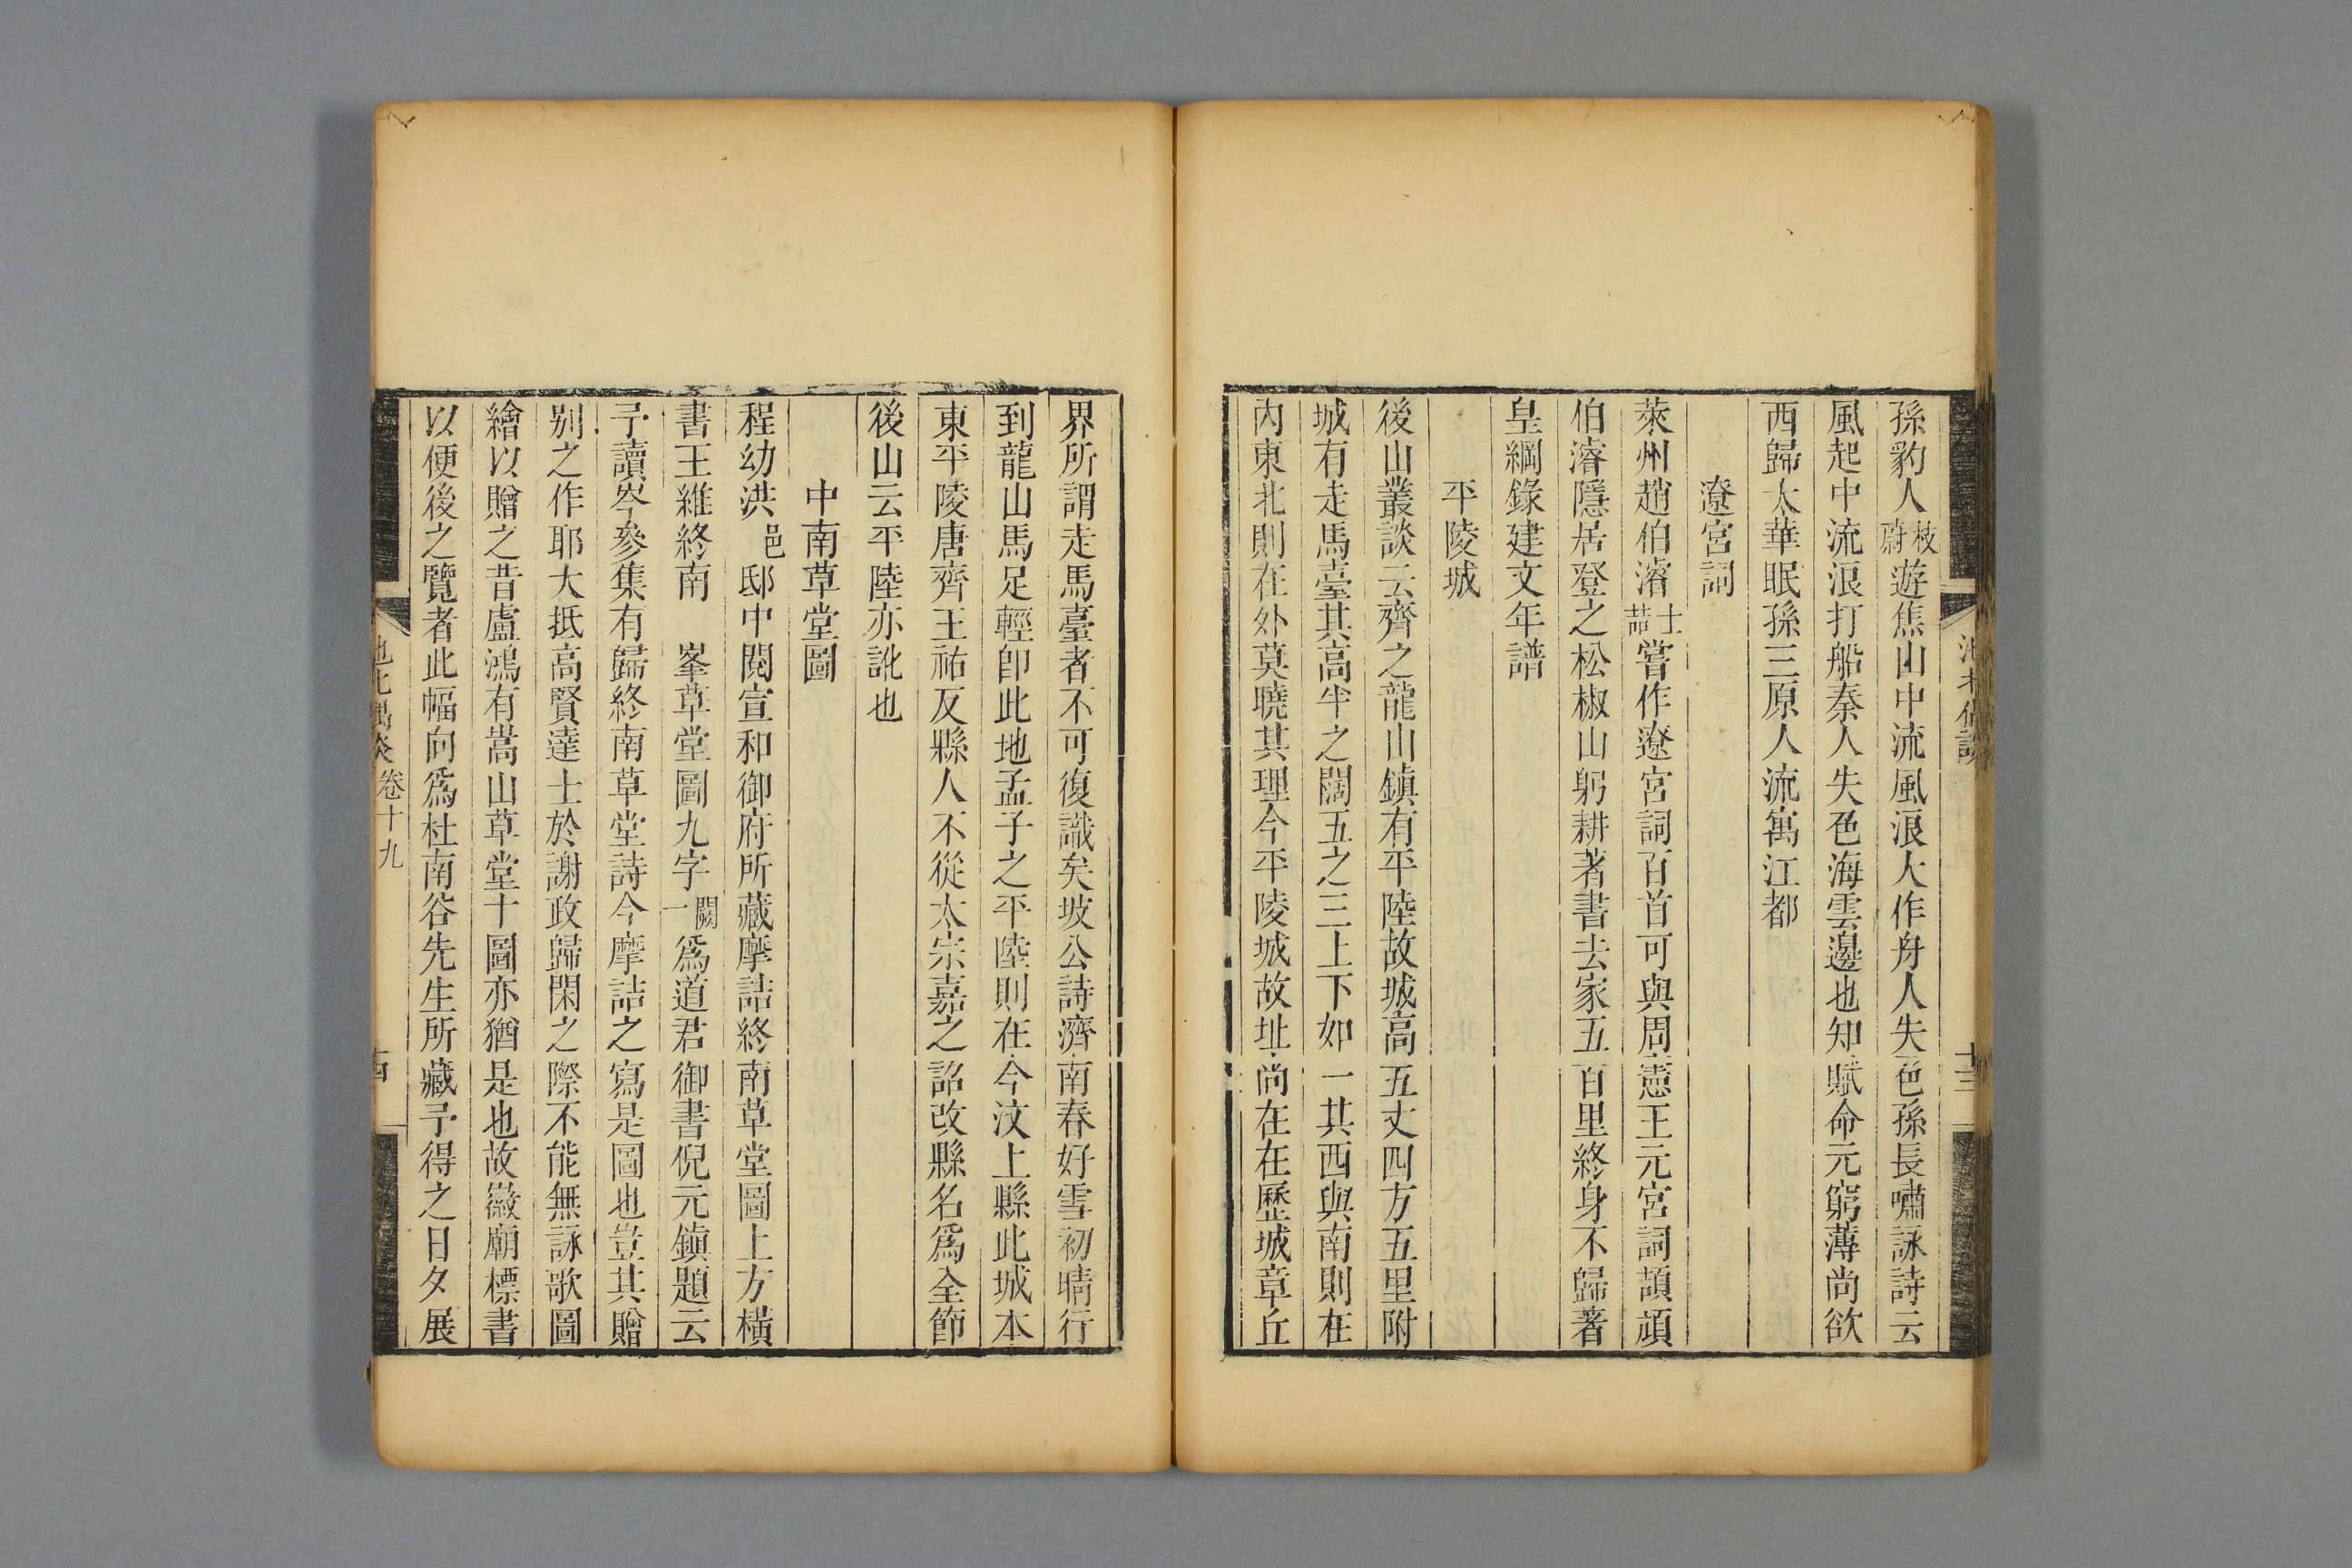 孫豹人枝蔚遊焦山中流風浪大作舟人失色孫長嘯詠詩云
風起中流浪打船秦人失色海雲邊也知賦命元窮薄尚欲
西歸太華眠孫三原人流寓江都
遼宮詞
萊州趙伯濬士喆嘗作遼宮詞百首可與周憲王元宮詞頡頏
伯濬隱居登之松椒山躬耕著書去家五百里終身不歸著
皇綱錄建文年譜
平陵城
後山叢談云齊之龍山鎮有平陸故城高五丈四方五里附
城有走馬臺其高半之闊五之三上下如一其西與南則在
內東北則在外莫曉其理今平陵城故址尚在在歷城章丘
界所謂走馬臺者不可復識矣坡公詩濟南春好雪初晴行
到龍山馬足輕卽此地孟子之平陸則在今汶上縣此城本
東平陵唐齊王祐反縣人不從太宗嘉之詔改縣名爲全節
後山云平陸亦訛也
中南草堂圖
程幼洪邑邸中閱宣和御府所藏摩詰終南草堂圖上方橫
書王維終南峯草堂圖九字闕一爲道君御書倪元鎮題云
予讀岑參集有歸終南草堂詩今摩詰之寫是圖也豈其贈
別之作耶大抵高賢達士於謝政歸閑之際不能無詠歌圖
繪以贈之昔盧鴻有嵩山草堂十圖亦猶是也故徽廟標書
以便後之覽者此幅向爲杜南谷先生所藏予得之日夕展
池北偶談 卷十九